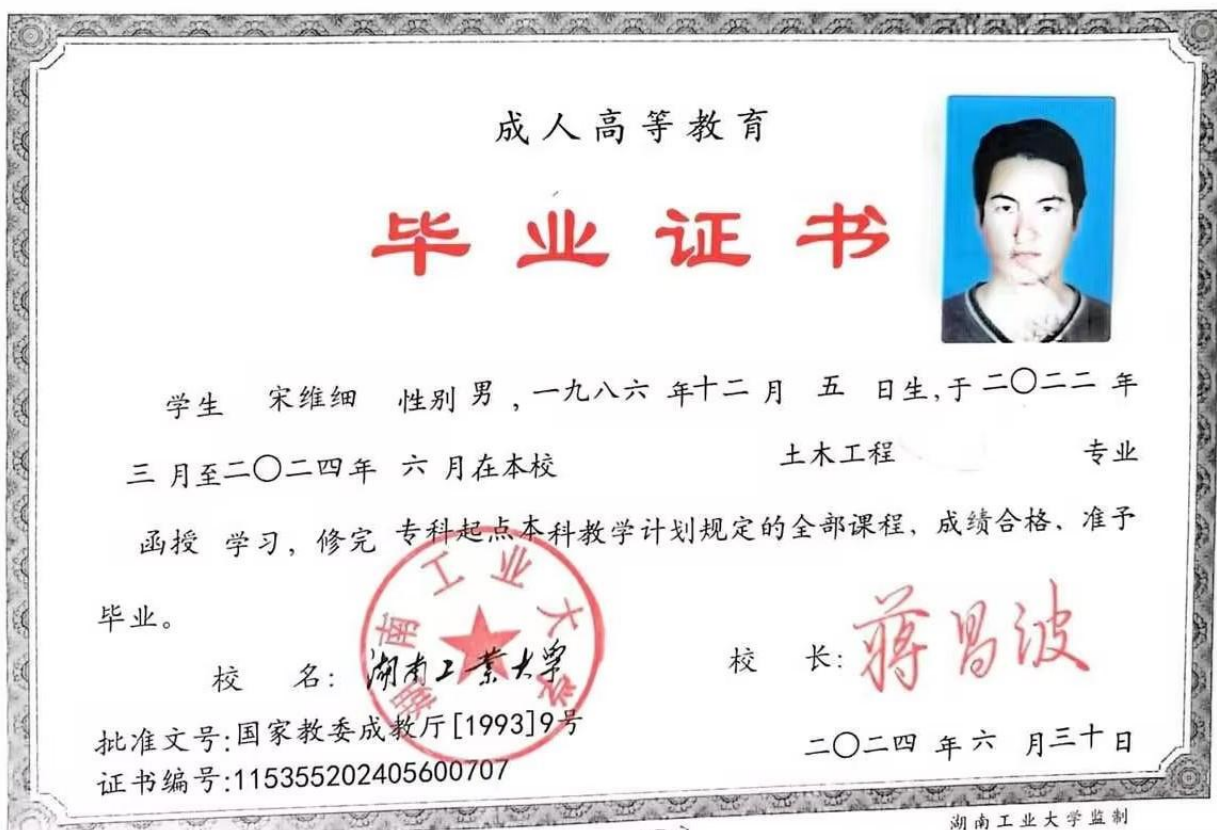 成人高等教育
毕业证书
学生 宋维细 性别 男 ,一九八六 年十二 月 五 日生,于 二〇二二 年
三 月至二〇二四年 六 月在本校 土木工程 专业
函授 学习, 修完 专科起点本科教学计划规定的全部课程, 成绩合格, 准予
毕业。
湖南工业大学
校 名: 湖南工业大学
校 长: 蒋昌波
批准文号:国家教委成教厅[1993]9号
二〇二四 年 六 月三十日
证书编号:115355202405600707
湖南工业大学监制